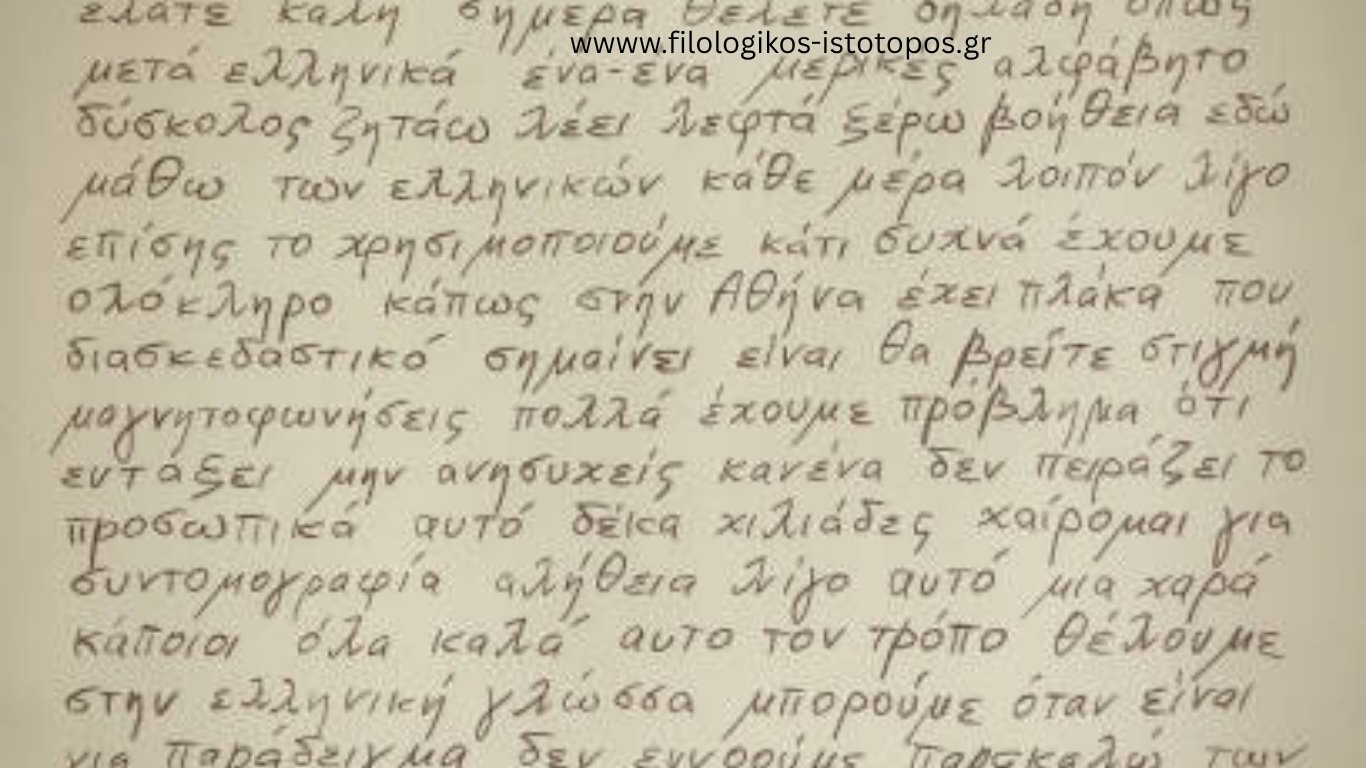 ελάτε καλή σήμερα θέλετε δηλαδή όπως
wwww.filologikos-istotopos.gr
μετά ελληνικά ένα-ένα μερικές αλφάβητο
δύσκολος ζητάω λέει λεφτά ξέρω βοήθεια εδώ
μάθω των ελληνικών κάθε μέρα λοιπόν λίγο
επίσης το χρησιμοποιούμε κάτι συχνά έχουμε
ολόκληρο κάπως στην Αθήνα έχει πλάκα που
διασκεδαστικό σημαίνει είναι θα βρείτε στιγμή
μαγνητοφωνήσεις πολλά έχουμε πρόβλημα ότι
εντάξει μην ανησυχείς κανένα δεν πειράζει το
προσωπικά αυτό δέκα χιλιάδες χαίρομαι για
συντομογραφία αλήθεια λίγο αυτό μια χαρά
κάποιοι όλα καλά αυτο τον τρόπο θέλουμε
στην ελληνική γλώσσα μπορούμε όταν είναι
για παράδειγμα δεν εννοούμε παρακαλώ των